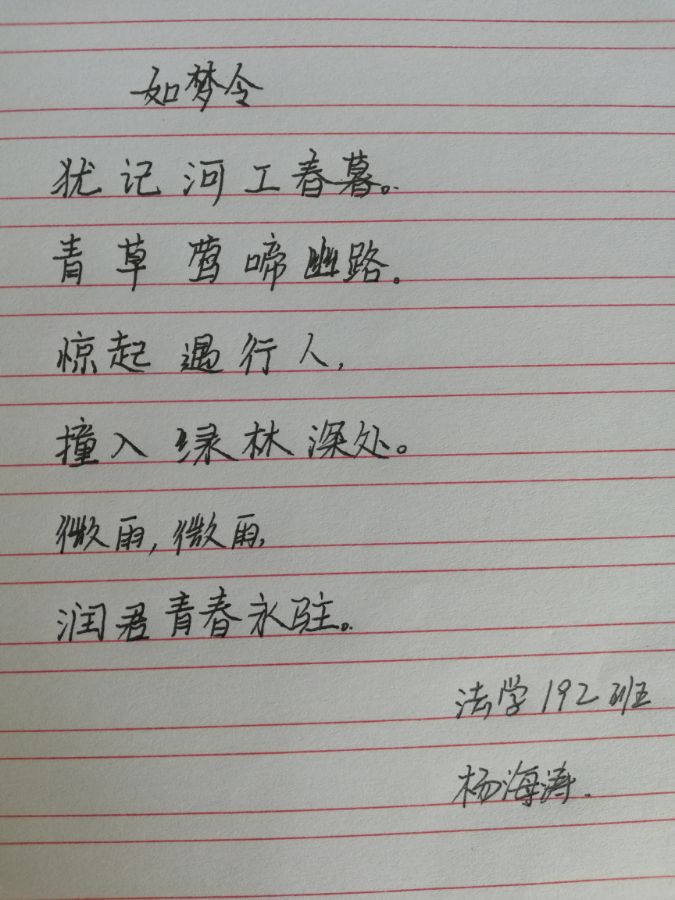 如梦令
犹记河工春暮。
青草莺啼幽路。
惊起遇行人,
撞入绿林深处。
微雨,微雨,
润君青春永驻。
法学192班
杨海涛.